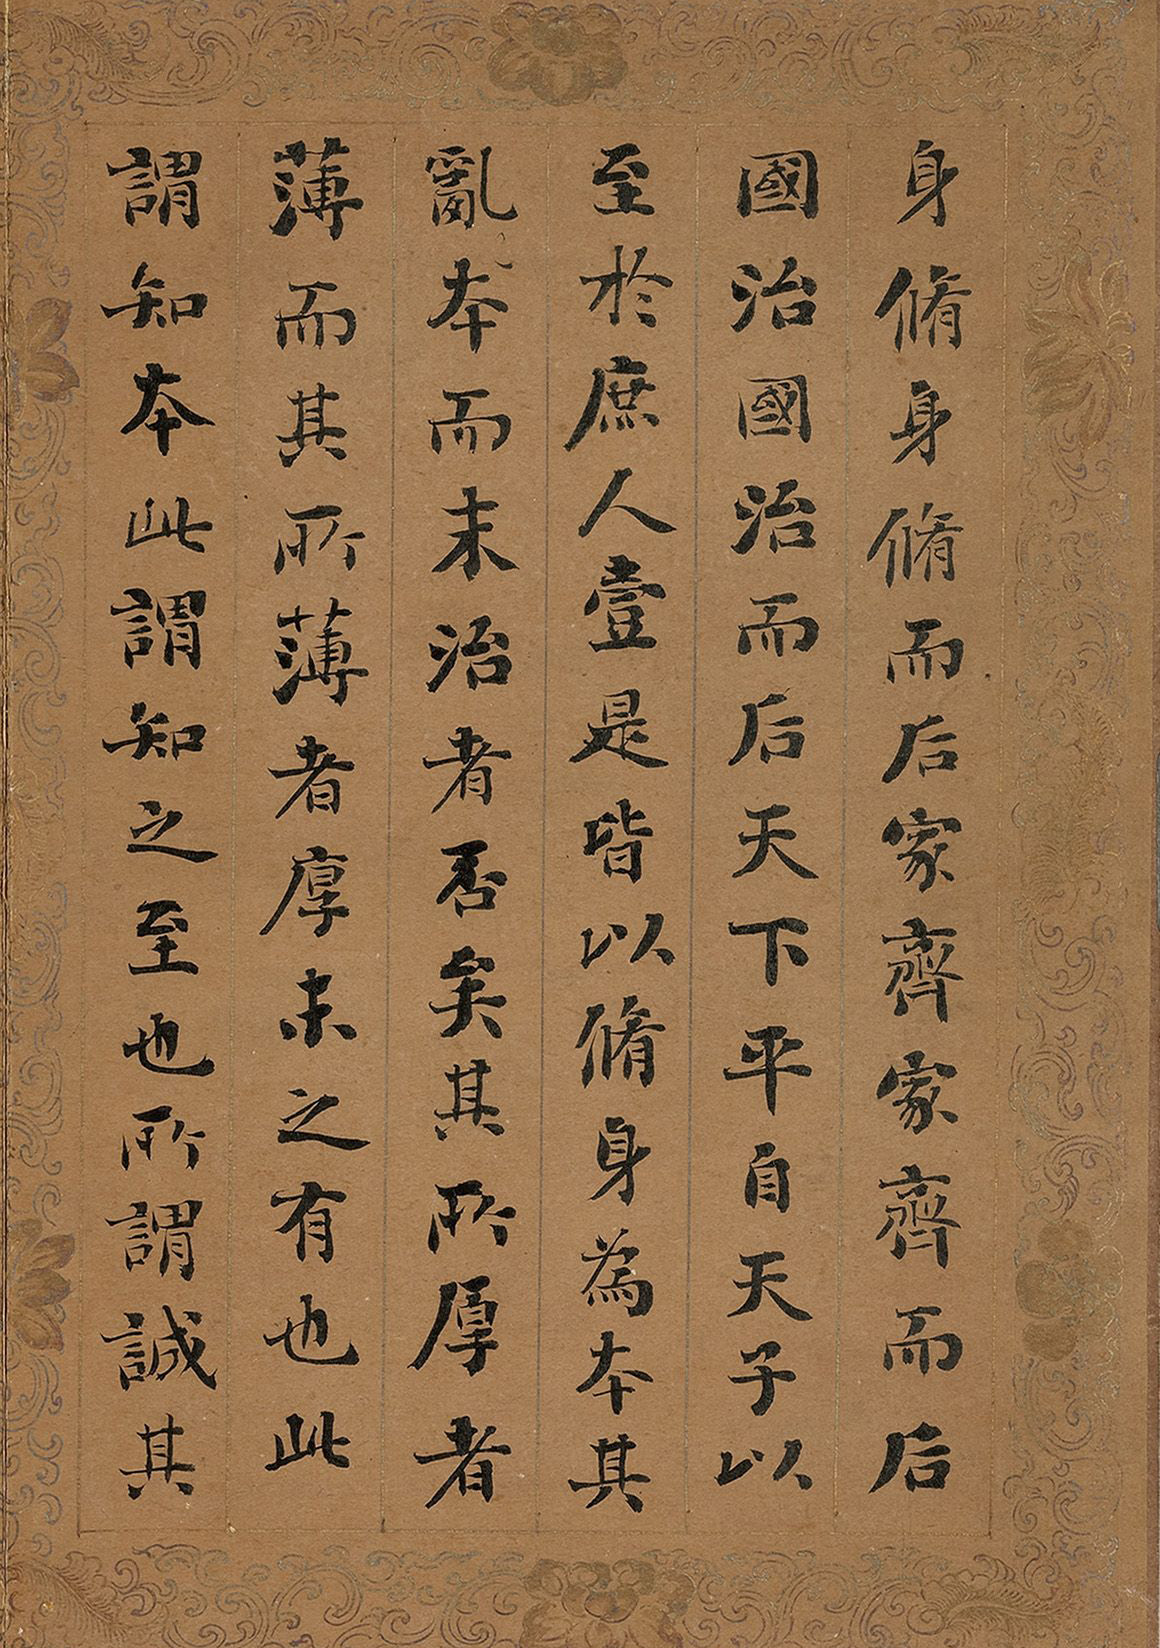 身脩身脩而后家齊家齊而后
國治國治而后天下平自天子以
至於庶人壹是皆以脩身為本其
亂本而末治者否矣其所厚者
薄而其所薄者厚未之有也此
謂知本此謂知之至也所謂誠其